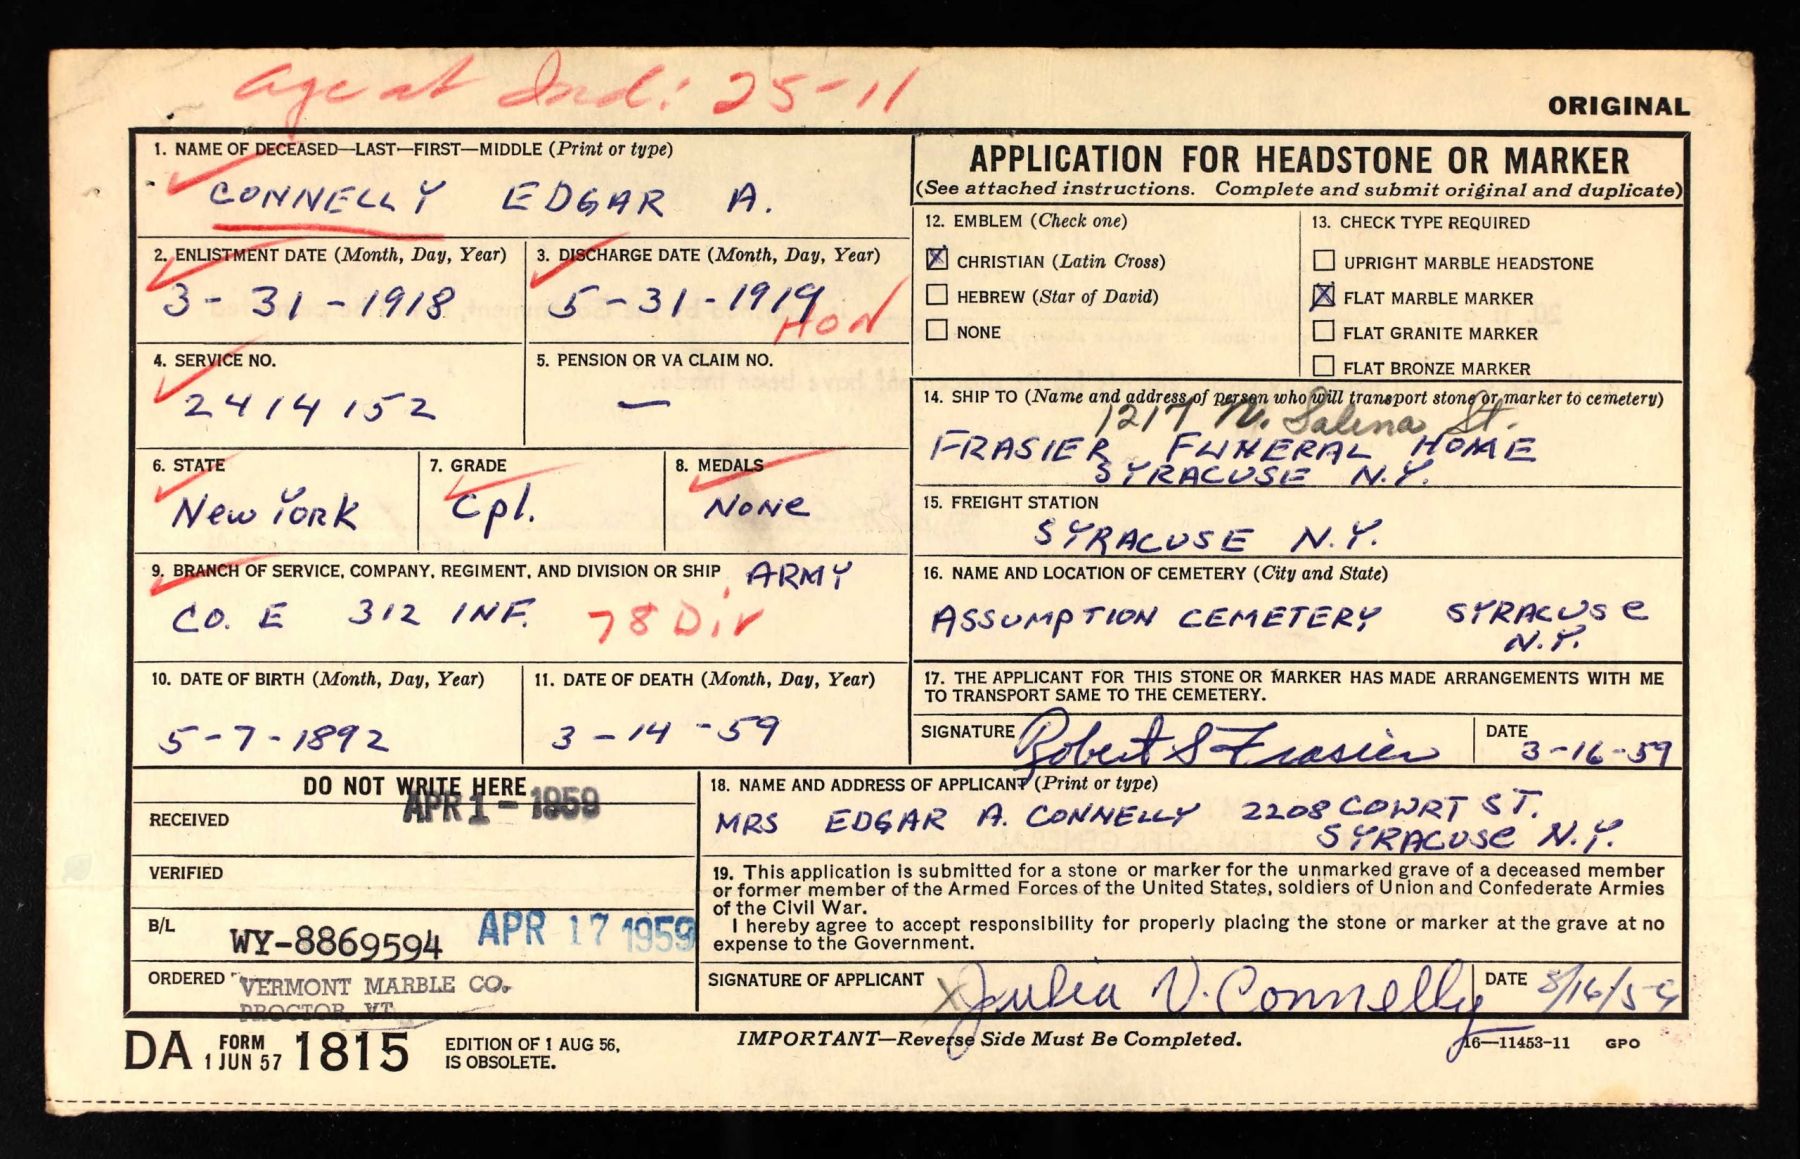 Age at Ind: 25-11
ORIGINAL
1. NAME OF DECEASED—LAST—FIRST—MIDDLE (Print or type)
CONNELLY EDGAR A.
2. ENLISTMENT DATE (Month, Day, Year)
3-31-1918
3. DISCHARGE DATE (Month, Day, Year)
5-31-1919
HON
4. SERVICE NO.
2414152
5. PENSION OR VA CLAIM NO.
—
6. STATE
New York
7. GRADE
Cpl.
8. MEDALS
NONe
9. BRANCH OF SERVICE, COMPANY, REGIMENT, AND DIVISION OR SHIP ARMY
CO. E 312 INF. 78 Div
10. DATE OF BIRTH (Month, Day, Year)
5-7-1892
11. DATE OF DEATH (Month, Day, Year)
3-14-59
APPLICATION FOR HEADSTONE OR MARKER
(See attached instructions. Complete and submit original and duplicate)
12. EMBLEM (Check one)
X CHRISTIAN (Latin Cross)
HEBREW (Star of David)
NONE
13. CHECK TYPE REQUIRED
UPRIGHT MARBLE HEADSTONE
X FLAT MARBLE MARKER
FLAT GRANITE MARKER
FLAT BRONZE MARKER
14. SHIP TO (Name and address of person who will transport stone or marker to cemetery)
1217 N. Salina St.
FRASIER FUNERAL HOME
SYRACUSE N.Y.
15. FREIGHT STATION
SYRACUSE N.Y.
16. NAME AND LOCATION OF CEMETERY (City and State)
ASSUMPTION CEMETERY SYRACUSe
N.Y.
17. THE APPLICANT FOR THIS STONE OR MARKER HAS MADE ARRANGEMENTS WITH ME
TO TRANSPORT SAME TO THE CEMETERY.
SIGNATURE Robert S Frasier DATE 3-16-59
DO NOT WRITE HERE
RECEIVED APR 1 - 1959
VERIFIED
B/L WY-8869594 APR 17 1959
ORDERED VERMONT MARBLE CO.
PROCTOR, VT.
18. NAME AND ADDRESS OF APPLICANT (Print or type)
MRS EDGAR A. CONNELLY 2208 COURT ST.
SYRACUSe N.Y.
19. This application is submitted for a stone or marker for the unmarked grave of a deceased member
or former member of the Armed Forces of the United States, soldiers of Union and Confederate Armies
of the Civil War.
I hereby agree to accept responsibility for properly placing the stone or marker at the grave at no
expense to the Government.
SIGNATURE OF APPLICANT X Julia V. Connelly DATE 3/16/59
DA FORM 1 JUN 57 1815
EDITION OF 1 AUG 56,
IS OBSOLETE.
IMPORTANT—Reverse Side Must Be Completed.
16—11453-11 GPO